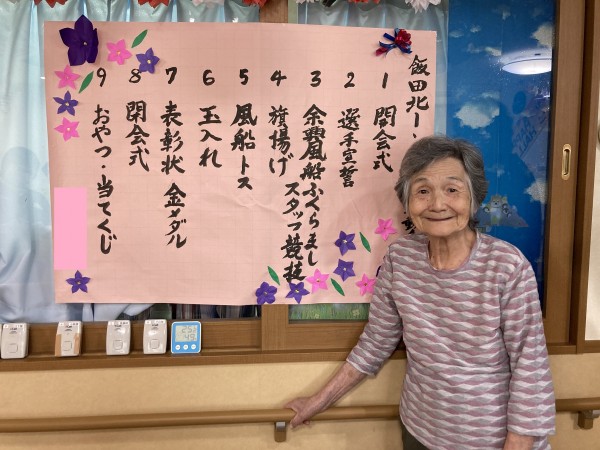 飯田北
1 開会式
2 選手宣誓
3 余興風船ふくらまし
スタッフ競技
4 旗揚げ
5 風船トス
6 玉入れ
7 表彰状 金メダル
8 閉会式
9 おやつ・当てくじ